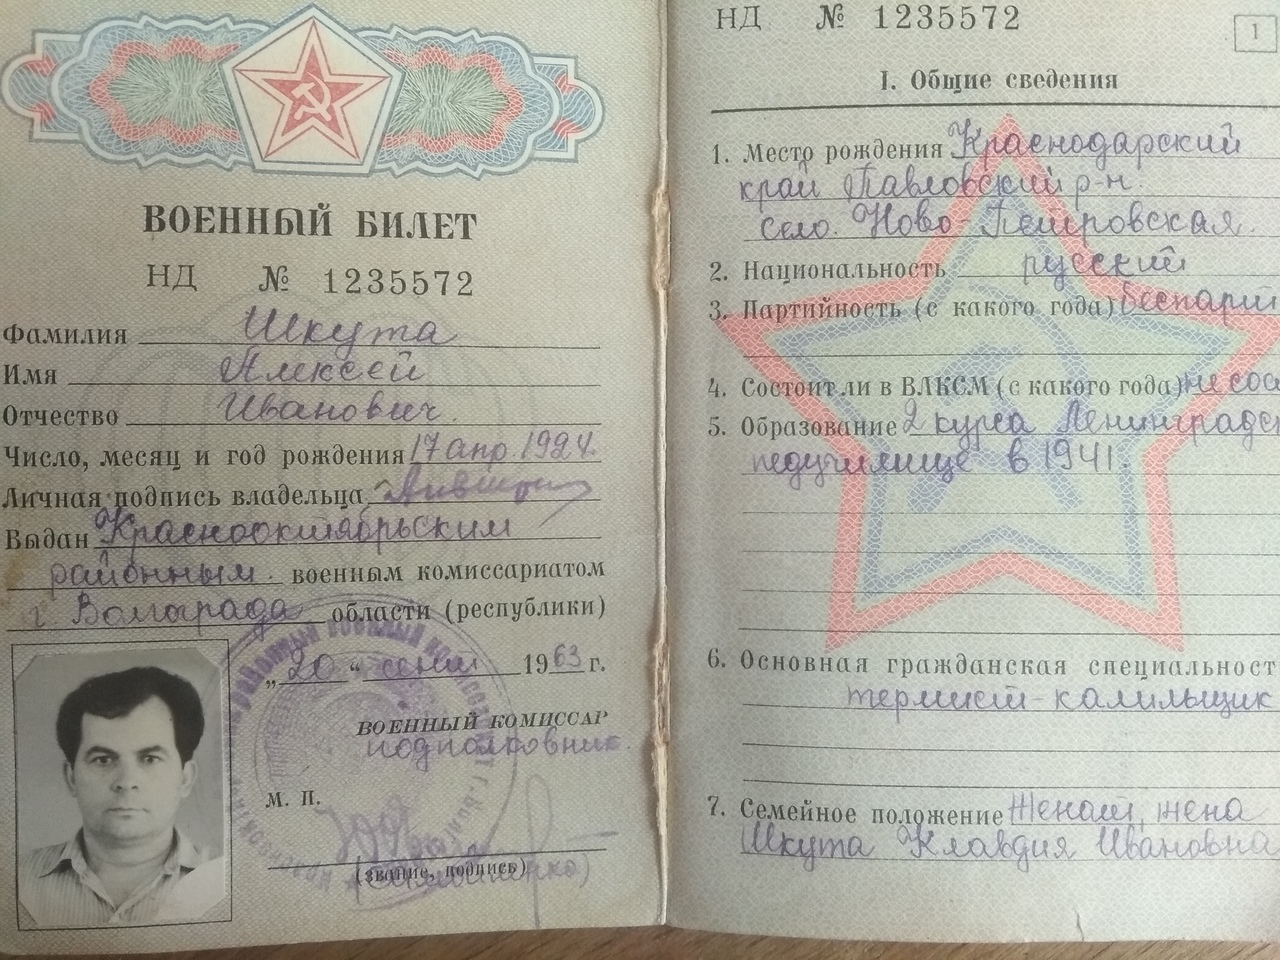 ВОЕННЫЙ БИЛЕТ
НД № 1235572
Фамилия Шкута
Имя Алексей
Отчество Иванович
Число, месяц и год рождения 17 апр. 1924.
Личная подпись владельца
Выдан Краснооктябрьским
районным. военным комиссариатом
г Волгограда области (республики)
„20“ сент 1963 г.
ВОЕННЫЙ КОМИССАР
подполковник
М. П.
(звание, подпись)
НД № 1235572
1
I. Общие сведения
1. Место рождения Краснодарский
край Павловский р-н.
село. Ново-Петровская.
2. Национальность русский
3. Партийность (с какого года) беспарт
4. Состоит ли в ВЛКСМ (с какого года) не сос
5. Образование 2 курса Ленинградс
педучилище в 1941.
6. Основная гражданская специальност
термист-калильщик
7. Семейное положение Женат, жена
Шкута Клавдия Ивановна